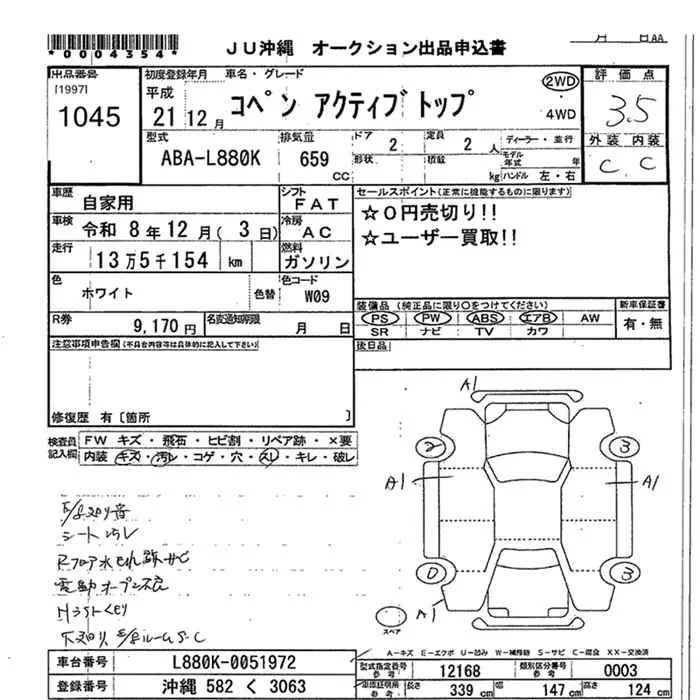 *0004354*
JU沖縄 オークション出品申込書
月 日AA
出品番号
[1997]
1045
初度登録年月
平成
21 12月
車名・グレード
コペン アクティブトップ
2WD
4WD
評価点
3.5
外装 内装
C C
型式
ABA-L880K
排気量
659
CC
ドア 2
形状
定員 2 人
積載 kg
ディーラー・並行
モデル年式 年
ハンドル 左・右
車歴 自家用
シフト FAT
車検 令和 8年 12月( 3 日)
冷房 AC
走行 13万5千154 km
燃料 ガソリン
色 ホワイト
色替
色コード W09
R券 9,170円
名変通知期限 月 日
セールスポイント(正常に機能するものに限ります)
☆0円売切り!!
☆ユーザー買取!!
装備品 (純正品に限り○をつけてください)
PS PW ABS エアB AW
SR ナビ TV カワ
新車保証書
有・無
後日品
注意事項申告欄(不具合内容等は具体的に記入して下さい)
修復歴 有〔箇所 〕
検査員記入欄
FW キズ・飛石・ヒビ割・リペア跡・×要
内装 キズ・汚レ・コゲ・穴・スレ・キレ・破レ
シート汚レ
A1
2 3
A1 A1
0 3
A1
スペア
A-キズ E-エクボ U-凹み W-補修跡 S-サビ C-腐食 XX-交換済
車台番号 L880K-0051972
登録番号 沖縄 582 く 3063
型式指定番号 参考 12168
類別区分番号 参考 0003
長さ 339 cm
幅 147 cm
高さ 124 cm